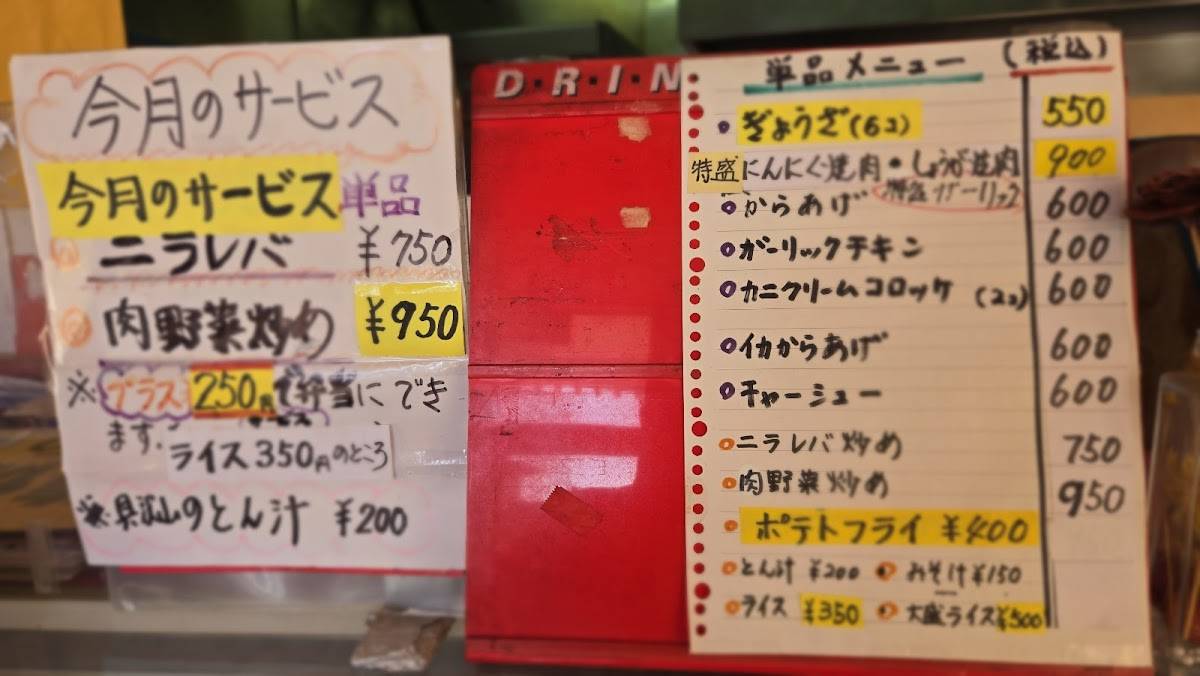 今月のサービス
今月のサービス 単品
① ニラレバ ¥750
② 肉野菜炒め ¥950
※プラス250円で弁当にでき
ます。
ライス350円のところ
※具沢山のとん汁 ¥200
D・R・I・N
単品メニュー (税込)
ぎょうざ(6コ) 550
特盛 にんにく焼肉・しょうが焼肉 900
からあげ 600
ガーリックチキン 600
カニクリームコロッケ (2コ) 600
イカからあげ 600
チャーシュー 600
ニラレバ炒め 750
肉野菜炒め 950
ポテトフライ ¥400
とん汁 ¥200 みそ汁 ¥150
ライス ¥350 大盛ライス ¥500